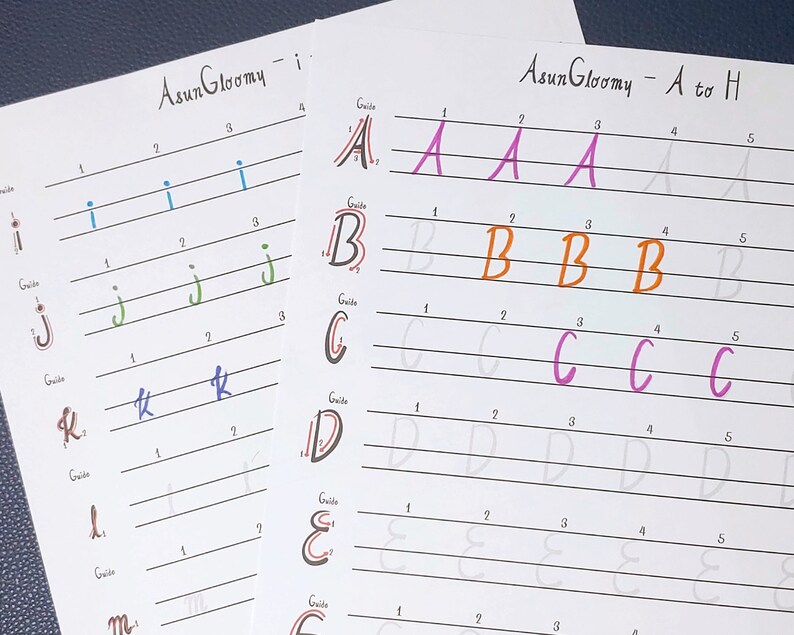 AsunGloomy - i
Guide
1 2 3 4
i i i i
Guide
1 2 3
j j j j
Guide
1 2 3
k k k
Guide
1 2
l l l
Guide
1 2
m m
AsunGloomy - A to H
Guide
1 2 3 4 5
A A A A A A
Guide
1 2 3 4 5
B B B B B B
Guide
1 2 3 4 5
C C C C C C
Guide
1 2 3 4 5
D D D D D D
Guide
1 2 3 4 5
E E E E E E
Guide
1 2 3 4 5